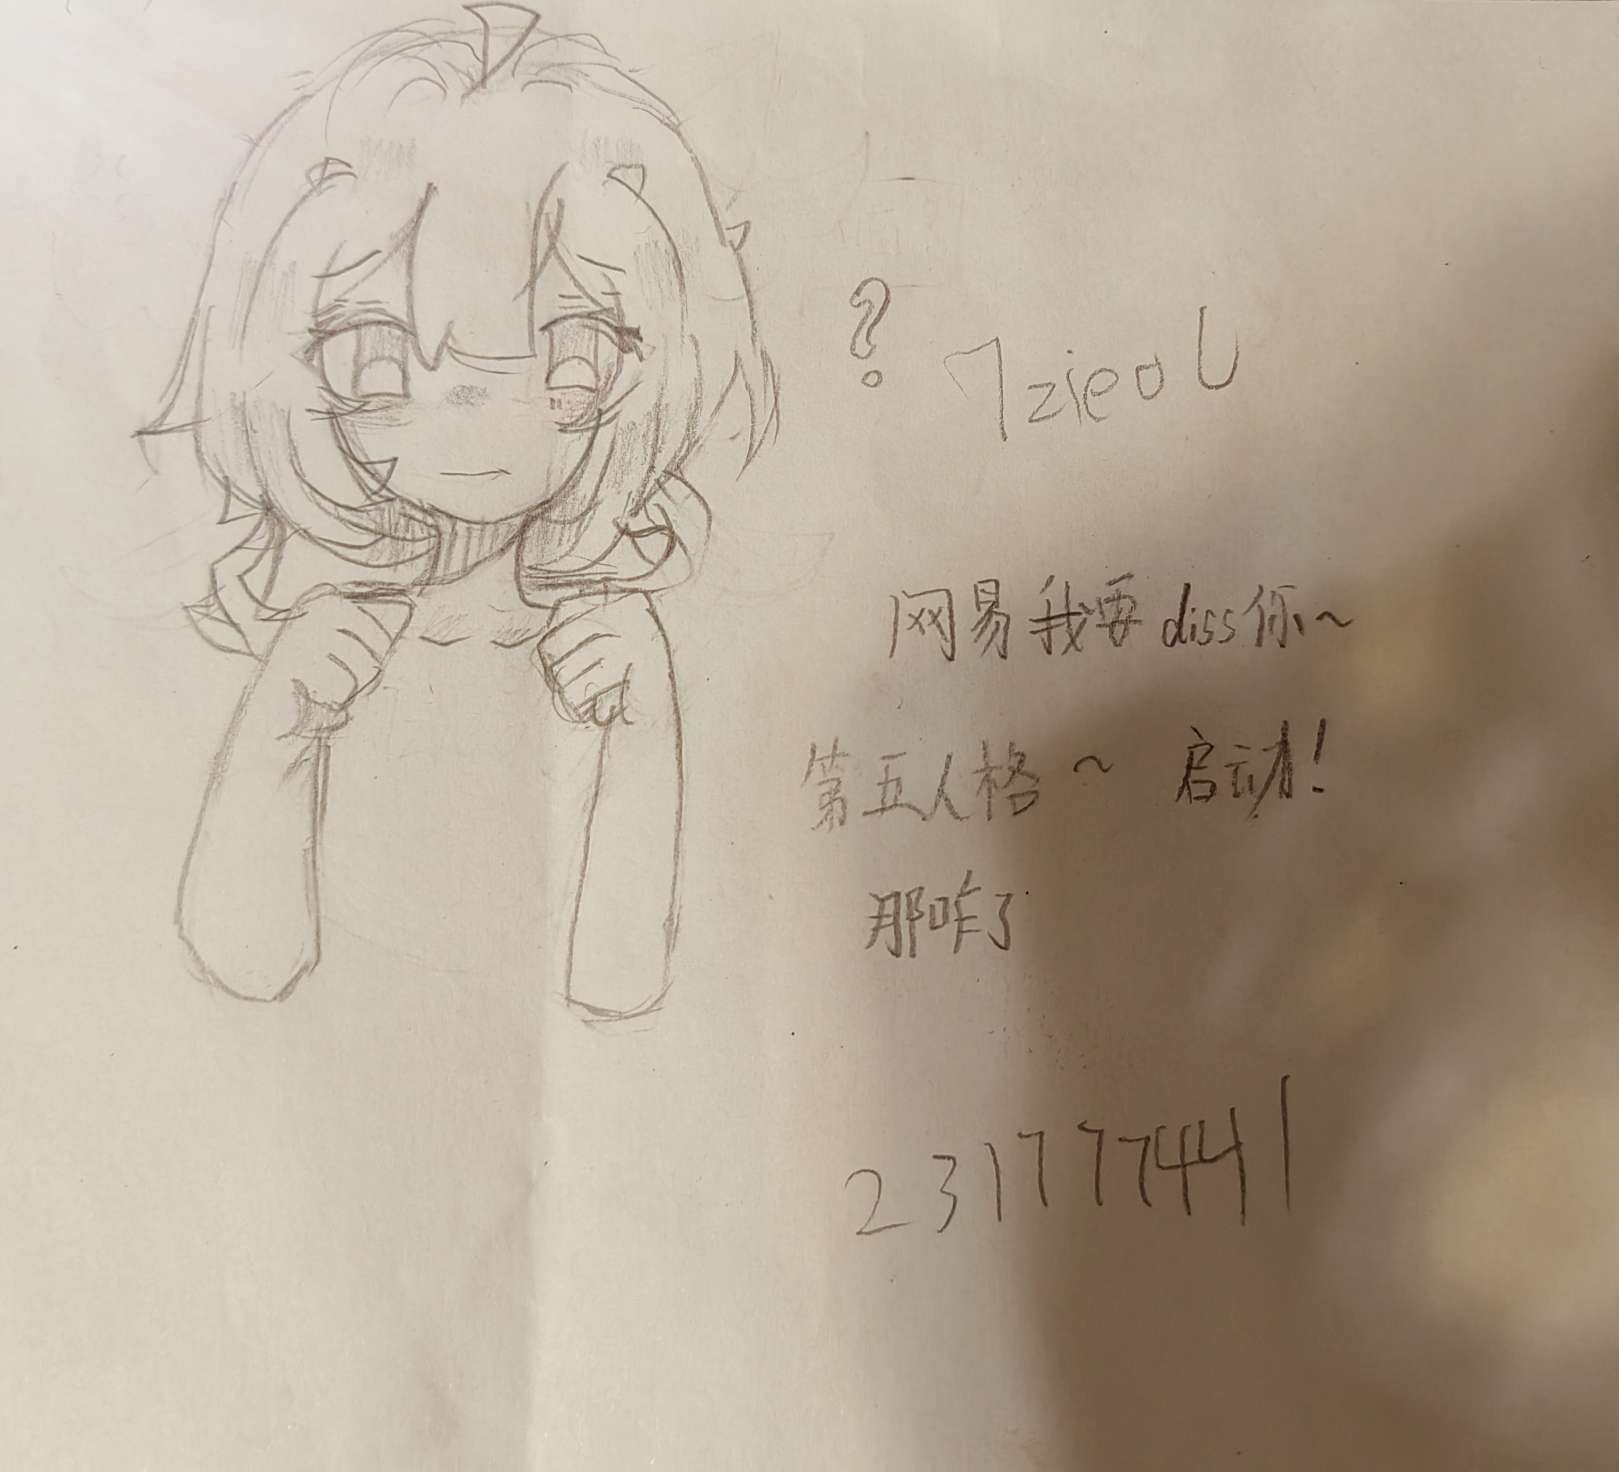 ? 7zieoU
网易我要diss你~
第五人格~ 启动!
那咋了
2317774441